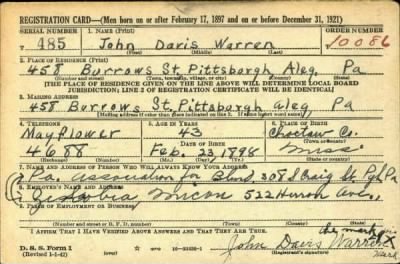 REGISTRATION CARD—(Men born on or after February 17, 1897 and on or before December 31, 1921)
SERIAL NUMBER 1. NAME (Print) ORDER NUMBER
T 485 John Davis Warren 10086
(First) (Middle) (Last)
2. PLACE OF RESIDENCE (Print)
458 Burrows St Pittsborgh Aleg. Pa
(Number and street) (Town, township, village, or city) (County) (State)
[THE PLACE OF RESIDENCE GIVEN ON THE LINE ABOVE WILL DETERMINE LOCAL BOARD
JURISDICTION; LINE 2 OF REGISTRATION CERTIFICATE WILL BE IDENTICAL]
3. MAILING ADDRESS
458 Burrows St. Pittsborgh Aleg, Pa
(Mailing address if other than place indicated on line 2. If same insert word same)
4. TELEPHONE 5. AGE IN YEARS 6. PLACE OF BIRTH
Mayflower 43 Choctaw Co.
DATE OF BIRTH (Town or county)
4688 Feb. 23, 1898 Miss.
(Exchange) (Number) (Mo.) (Day) (Yr.) (State or country)
7. NAME AND ADDRESS OF PERSON WHO WILL ALWAYS KNOW YOUR ADDRESS
Pa. Association for Blind 308 S Craig St. Pgh Pa
8. EMPLOYER'S NAME AND ADDRESS
522 Herron Ave.,
9. PLACE OF EMPLOYMENT OR BUSINESS
(Number and street or R. F. D. number) (Town) (County) (State)
I AFFIRM THAT I HAVE VERIFIED ABOVE ANSWERS AND THAT THEY ARE TRUE.
mark
D. S. S. Form 1 John Davis Warren X
(Revised 1-1-42) (over) (Registrant's signature) Mark